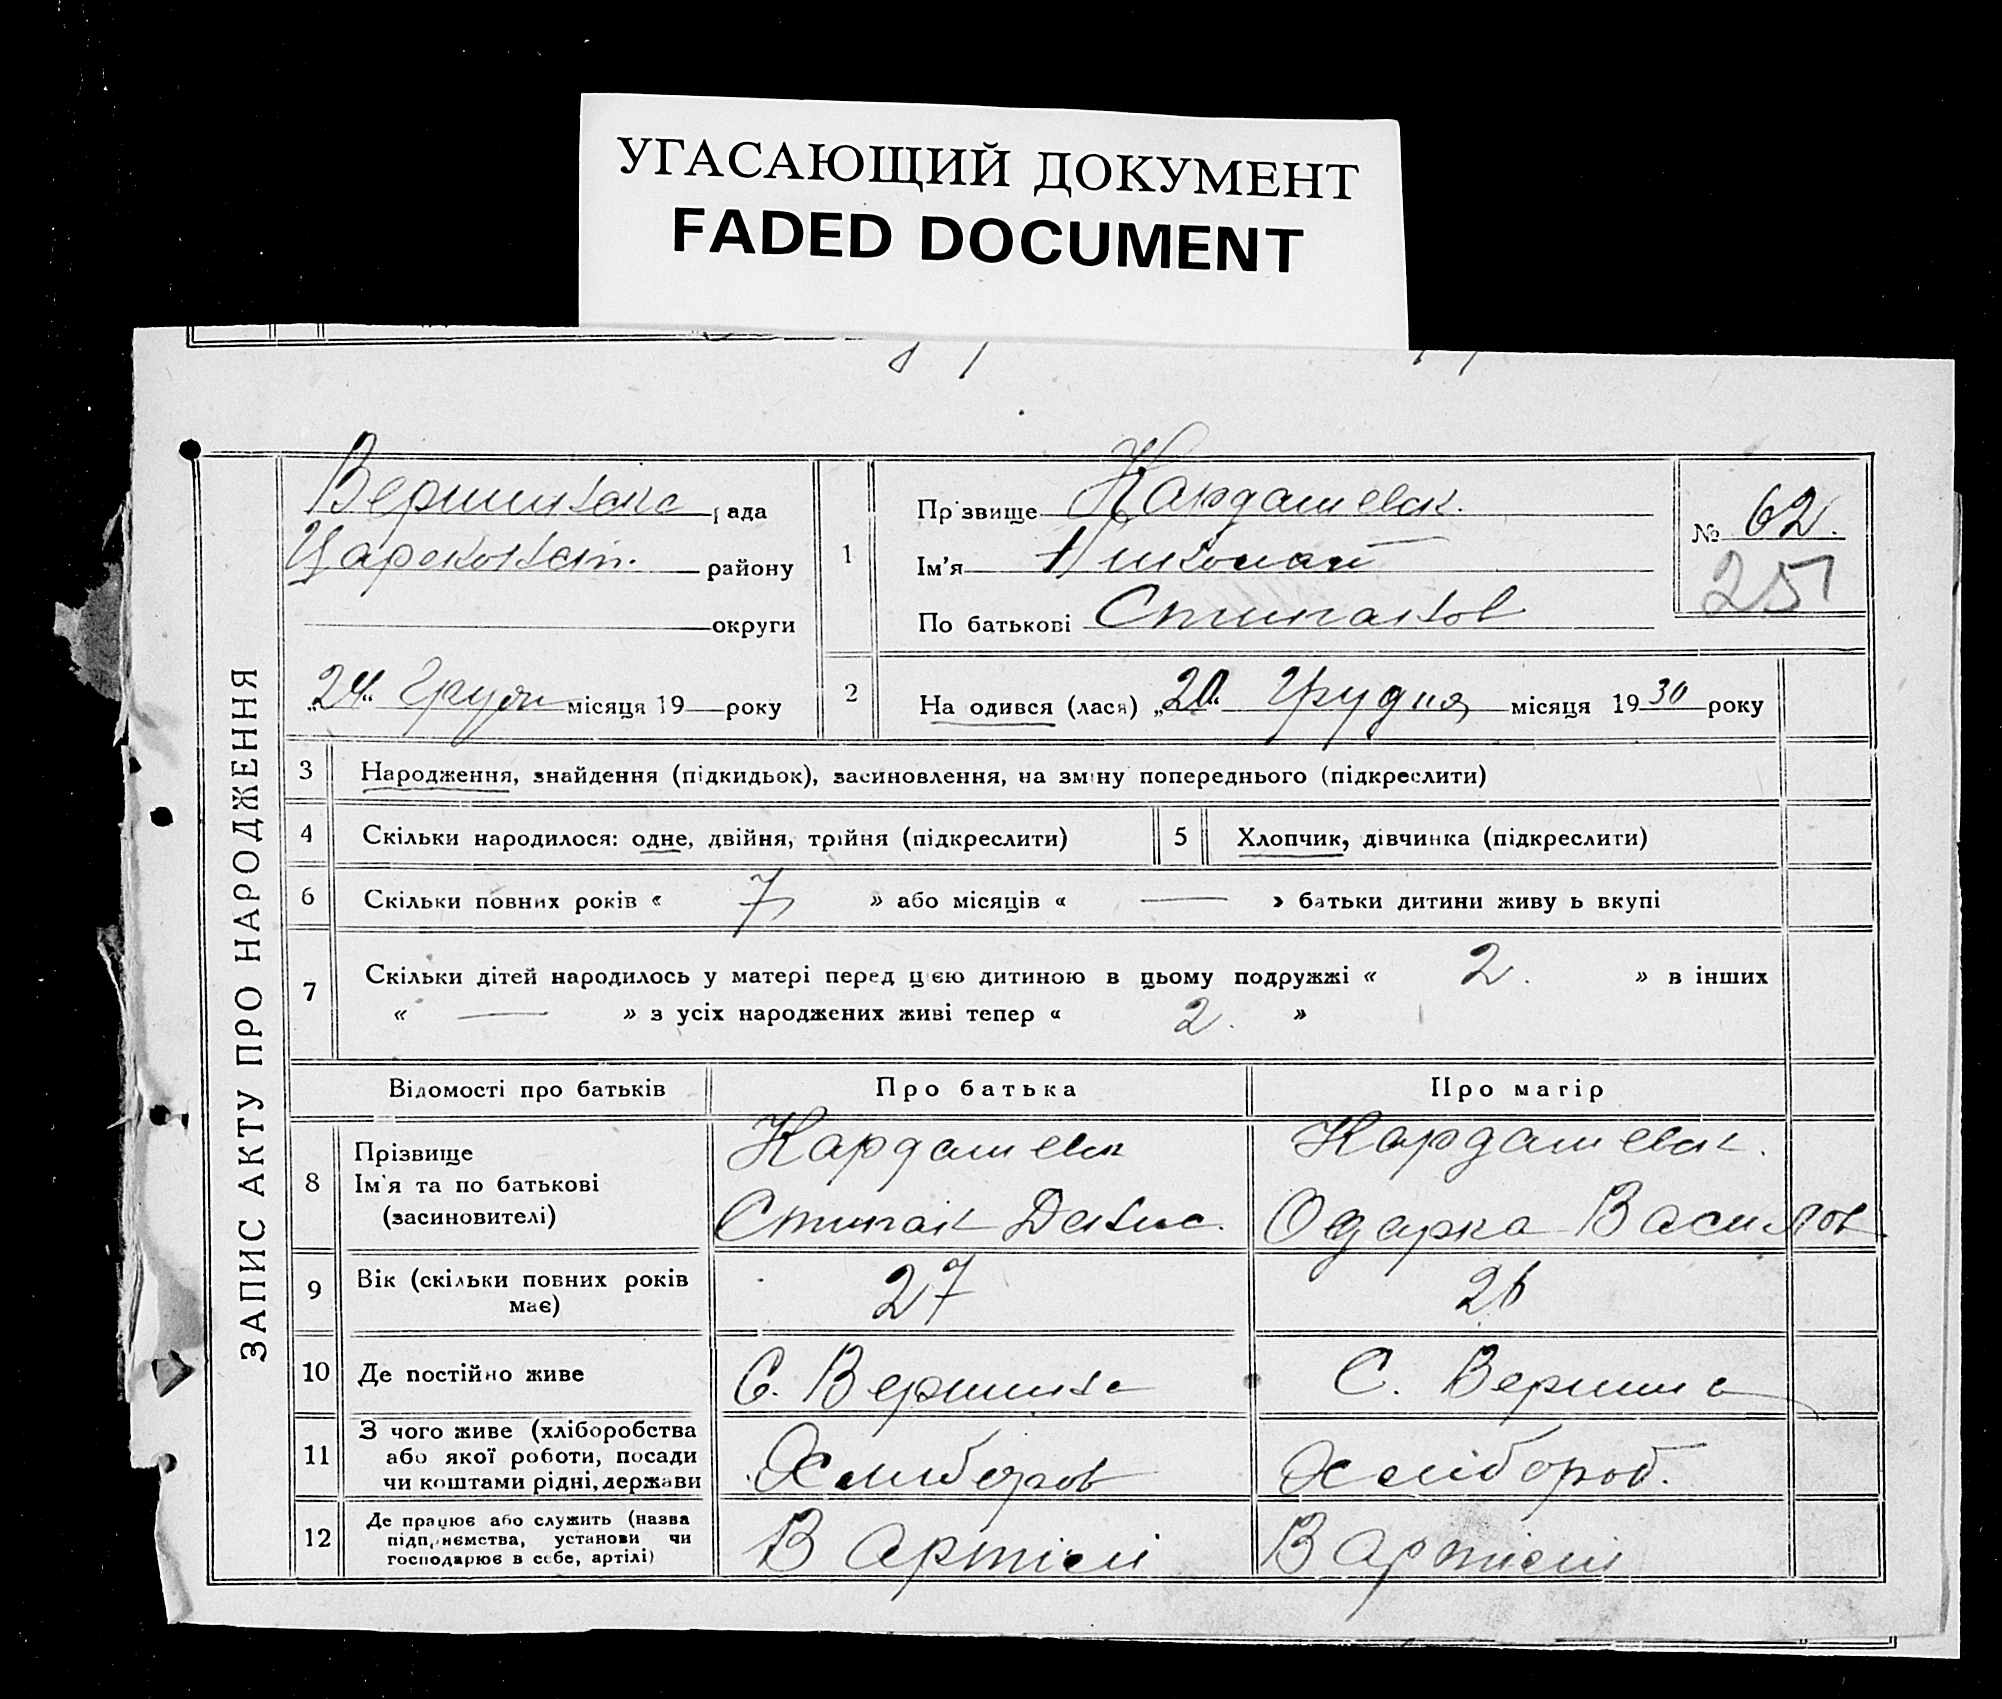 УГАСАЮЩИЙ ДОКУМЕНТ
FADED DOCUMENT
ЗАПИС АКТУ ПРО НАРОДЖЕННЯ
рада
району
округи
„24“ Грудн місяця 19 року
1
Прізвище Кардашевск.
Ім’я Николай
По батькові
№ 62.
251
2
На одився (лася) „20“ Грудня місяця 1930 року
3 Народження, знайдення (підкидьок), засиновлення, на зміну попереднього (підкреслити)
4 Скільки народилося: одне, двійня, трійня (підкреслити)
5 Хлопчик, дівчинка (підкреслити)
6 Скільки повних років « 7 » або місяців « — » батьки дитини живу ь вкупі
7 Скільки дітей народилось у матері перед цією дитиною в цьому подружжі « 2. » в інших
« — » з усіх народжених живі тепер « 2. »
Відомості про батьків Про батька Про матір
8 Прізвище
Ім’я та по батькові
(засиновителі)
Кардашевск
Кардашевск.
Одарка Василов
9 Вік (скільки повних років
має)
27
26
10 Де постійно живе
С. Вершина
С. Вершина
11 З чого живе (хліборобства
або якої роботи, посади
чи коштами рідні, держави
Хлибороб
Хлібороб.
12 Де працює або служить (назва
підприємства, установи чи
господарює в себе, артілі)
В Артілі
В Артілі